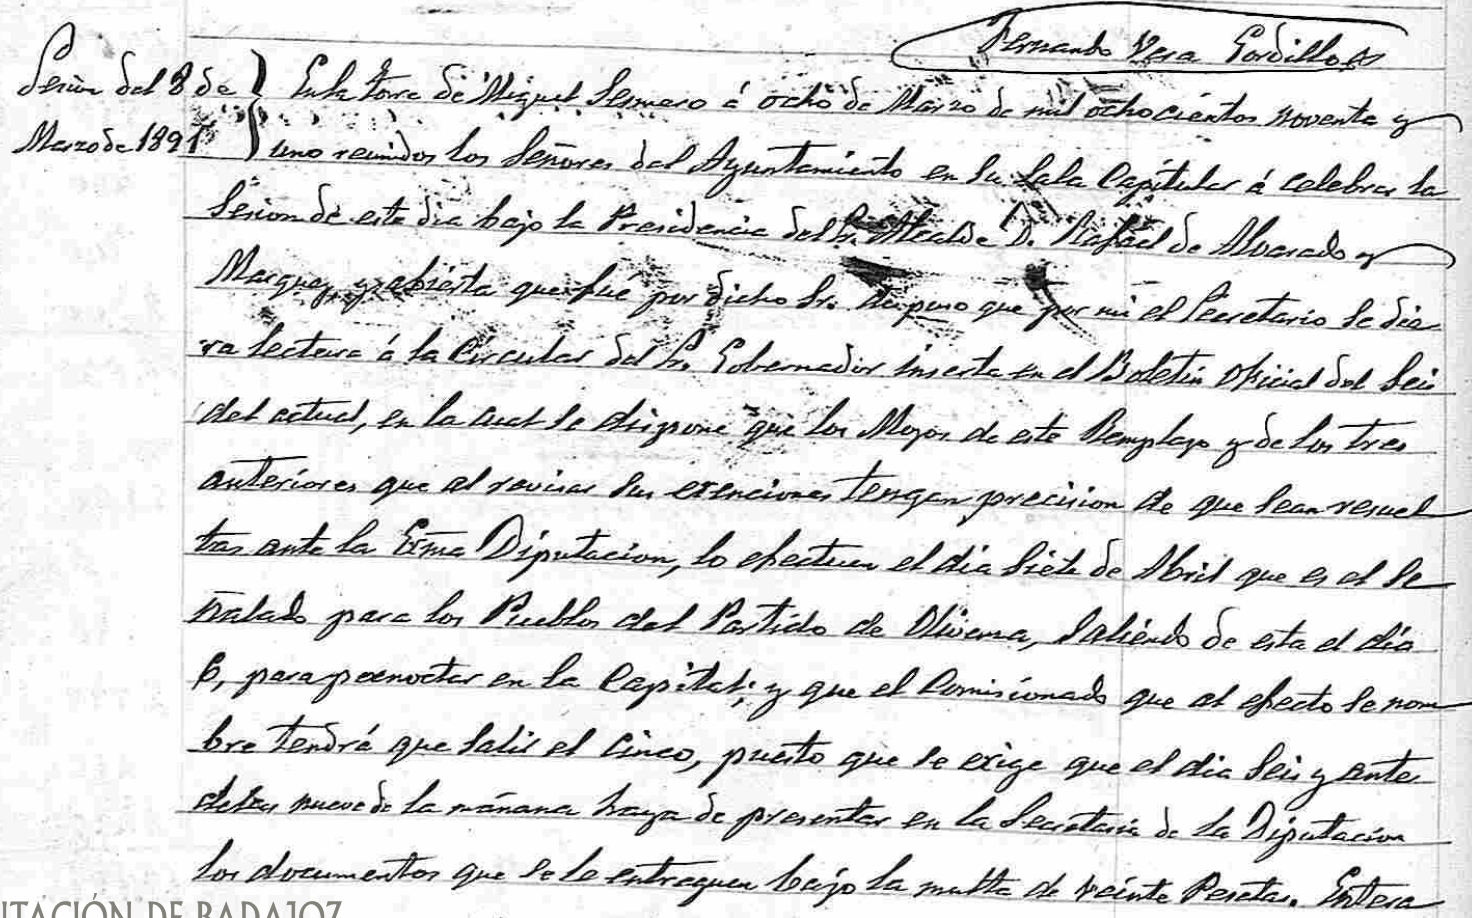 Fernando Vera Gordillo
Sesion del 8 de
Marzo de 1891
En la torre de Miguel Sesmero á ocho de Marzo de mil ochocientos noventa y
uno reunidos los Señores del Ayuntamiento en su Sala Capitular á celebrar la
Sesion de este dia bajo la Presidencia del Sr. Alcalde D. Rafael de Alvarado y
Marquez, y abierta que fué por dicho Sr. dispuso que por mi el Secretario se die
ra lectura á la Circular del Sr. Gobernador inserta en el Boletin Oficial del Seis
del actual, en la cual se dispone que los Mozos de este Remplazo y de los tres
anteriores que al revisar sus exenciones tengan precision de que sean resuel
tas ante la Exma Diputacion, lo efectuen el dia siete de Abril que es el se
ñalado para los Pueblos del Partido de Olivenza, saliendo de esta el dia
6, para pernoctar en la Capital; y que el Comisionado que al efecto se nom
bre tendrá que salir el Cinco, puesto que se exige que el dia Seis y antes
de las nueve de la mañana haya de presentar en la Secretaria de la Diputacion
los documentos que se le entreguen bajo la multa de veinte Pesetas. Entera
TACIÓN DE BADAJOZ